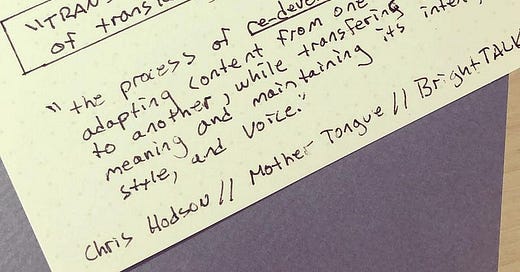 "TRAN
of transl
"the process of re-deve
adapting content from one
to another, while transfering
meaning and maintaining its inten
style, and voice."
Chris Hodson // Mother Tongue // BrightTALK